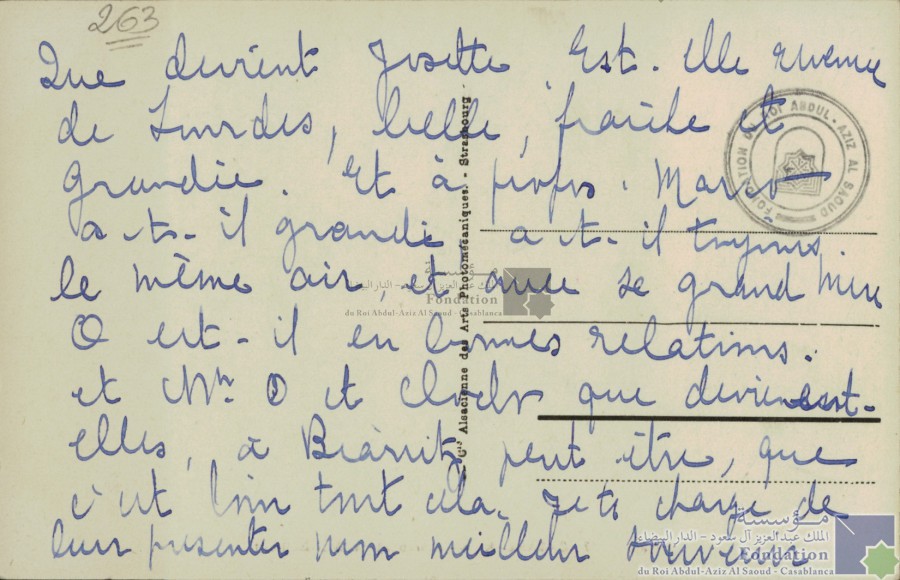 263
Que devient Josette Est-elle revenue
de Lourdes, belle, fraîche et
grandie. Et à propos. Marc
a-t-il grandi, a-t-il toujours
le même air, et avec le grand Mr
O est-il en bonnes relations.
et Mme O et que deviennent-
elles, à Biarritz peut être, que
c'est loin tout cela. Je te charge de
leur présenter mon meilleur souvenir
Cie Alsacienne des Arts Photomécaniques. - Strasbourg -
FONDATION DU ROI ABDUL-AZIZ AL SAOUD
مؤسسة
الملك عبد العزيز آل سعود - الدار البيضاء
Fondation
du Roi Abdul-Aziz Al Saoud - Casablanca
مؤسسة
الملك عبد العزيز آل سعود - الدار البيضاء
Fondation
du Roi Abdul-Aziz Al Saoud - Casablanca